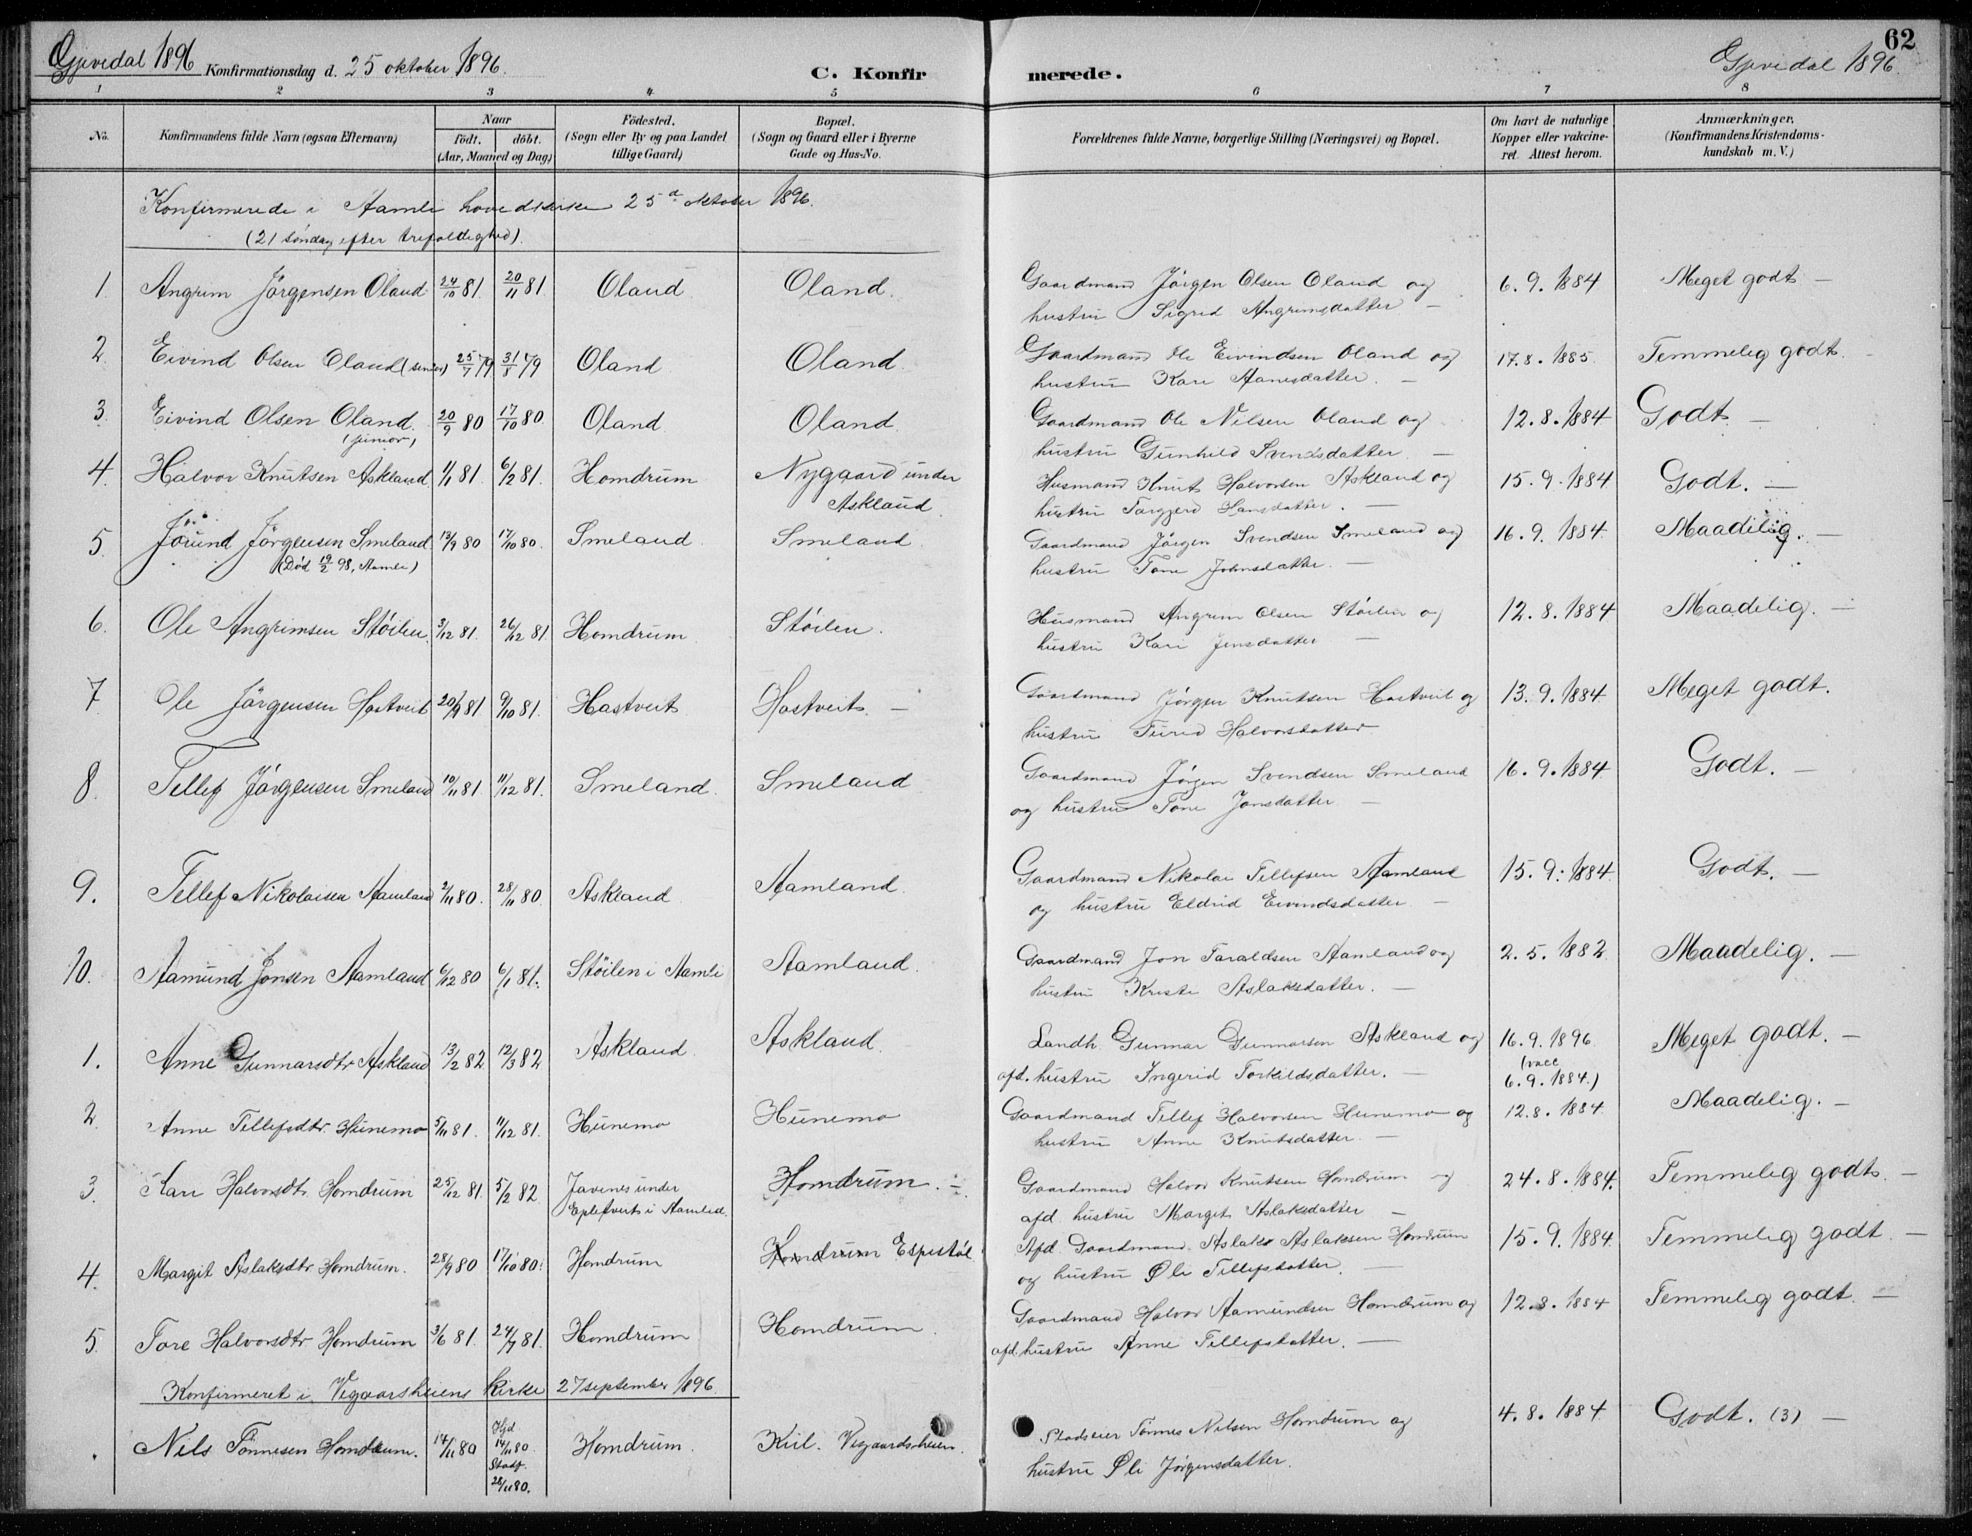 62
Gjøvedal 1896 Konfirmationsdag d. 25 oktober 1896. C. Konfirmerede. Gjøvedal 1896.
1 2 3 4 5 6 7 8
No. Konfirmandens fulde Navn (ogsaa Efternavn) Naar födt. döbt. (Aar, Maaned og Dag) Födested. (Sogn eller By og paa Landet tillige Gaard) Bopæl. (Sogn og Gaard eller i Byerne Gade og Hus-No. Forældrenes fulde Navne, borgerlige Stilling (Næringsvei) og Bopæl. Om havt de naturlige Kopper eller vakcineret. Attest herom. Anmærkninger. (Konfirmandens Kristendomskundskab m. V.)
Konfirmerede i Aamli hovedkirke 25de oktober 1896.
(21 söndag efter trefoldighed).
1 Angrim Jörgensen Oland 24/10 81. 20/11 81. Oland. Oland. Gaardmand Jörgen Olsen Oland og 6.9.1884 Meget godt —
hustru Sigrid Angrimsdatter —
2. Eivind Olsen Oland (senior) 25/7 79 31/8 79 Oland Oland. Gaardmand Ole Eivindsen Oland og 17.8.1885. Temmelig godt.
hustru Kari Aanesdatter. —
3. Eivind Olsen Oland. 20/9 80 17/10 80. Oland. Oland. Gaardmand Ole Nilsen Oland og 12.8.1884 Godt —
(junior) hustru Gunhild Svendsdatter. —
4. Halvor Knutsen Askland 1/1 81. 6/2 81. Homdrum Nygaard under Husmand Knut Halvorsen Askland og 15.9.1884 Godt. —
Askland. hustru Torgjerd Hansdatter. —
5. Jörund Jörgensen Smeland 12/9 80 17/10 80. Smeland. Smeland Gaardmand Jörgen Svendsen Smeland og 16.9.1884. Maadelig. —
(Död 19/2 98, Aamli) hustru Tone Johnsdatter. —
6. Ole Angrimsen Stöilen. 3/12 81. 26/12 81 Homdrum Stöilen. Husmand Angrim Olsen Stöilen og 12.8.1884 Maadelig. —
hustru Kari Jensdatter —
7 Ole Jörgensen Hastveit 20/9 81 9/10 81. Hastveit Hastveit. — Gaardmand Jörgen Knutsen Hastveit og 13.9.1884 Meget godt.
hustru Turid Halvorsdatter
8. Tellef Jörgensen Smeland 10/11 81. 11/12 81. Smeland. Smeland Gaardmand Jörgen Svendsen Smeland 16.9.1884 Godt. —
og hustru Tone Jonsdatter —
9. Tellef Nikolaisen Aamland 2/11 80. 28/11 80 Askland Aamland. Gaardmand Nikolai Tellefsen Aamland 15.9.1884. Godt. —
og hustru Eldrid Eivindsdatter. —
10. Aamund Jonsen Aamland 6/12 80 6/1 81. Stöilen i Aamli Aamland. Gaardmand Jon Taraldsen Aamland og 2.5.1882 Maadelig. —
hustru Kristi Aslaksdatter. —
1. Anne Gunnarsdtr Askland 13/2 82 12/3 82 Askland. Askland. Landh. Gunnar Gunnarsen Askland og 16.9.1896. Meget godt. —
afd. hustru Ingerid Torkildsdatter. — (vacc 6.9.1884.)
2. Anne Tellefsdtr. Hunemo 5/11 81. 11/12 81. Hunemo Hunemo Gaardmand Tellef Halvorsen Hunemo og 12.8.1884 Maadelig. —
hustru Anne Knutsdatter. —
3. Kari Halvorsdtr. Homdrum 25/12 81. 5/2 82 Javenes under Homdrum. — Gaardmand Halvor Knutsen Homdrum og 24.8.1884. Temmelig godt. —
Eplestveit i Aamli. afd. hustru Margit Aslaksdatter —
4. Margit Aslaksdtr Homdrum. 28/9 80 17/10 80. Homdrum Homdrum Espestöl Afd. Gaardmand Aslak Aslaksen Homdrum 15.9.1884. Temmelig godt. —
og hustru Øli Tellefsdatter. —
5. Tore Halvorsdtr Homdrum 3/6 81. 24/7 81. Homdrum Homdrum. Gaardmand Halvor Aamundsen Homdrum og 12.8.1884 Temmelig godt. —
afd. hustru Anne Tellefsdatter. —
Konfirmeret i Vegaarsheiens kirke 27 september 1896
. Nils Tönnesen Homdrum. 14/11 80 Hjd 14/11 80. Stadf. 28/11 80. Homdrum. Kiil. Vegaardsheien. Pladseier Tönnes Nilsen Homdrum og 4.8.1884 Godt. (3) —
hustru Øli Jörgensdatter.